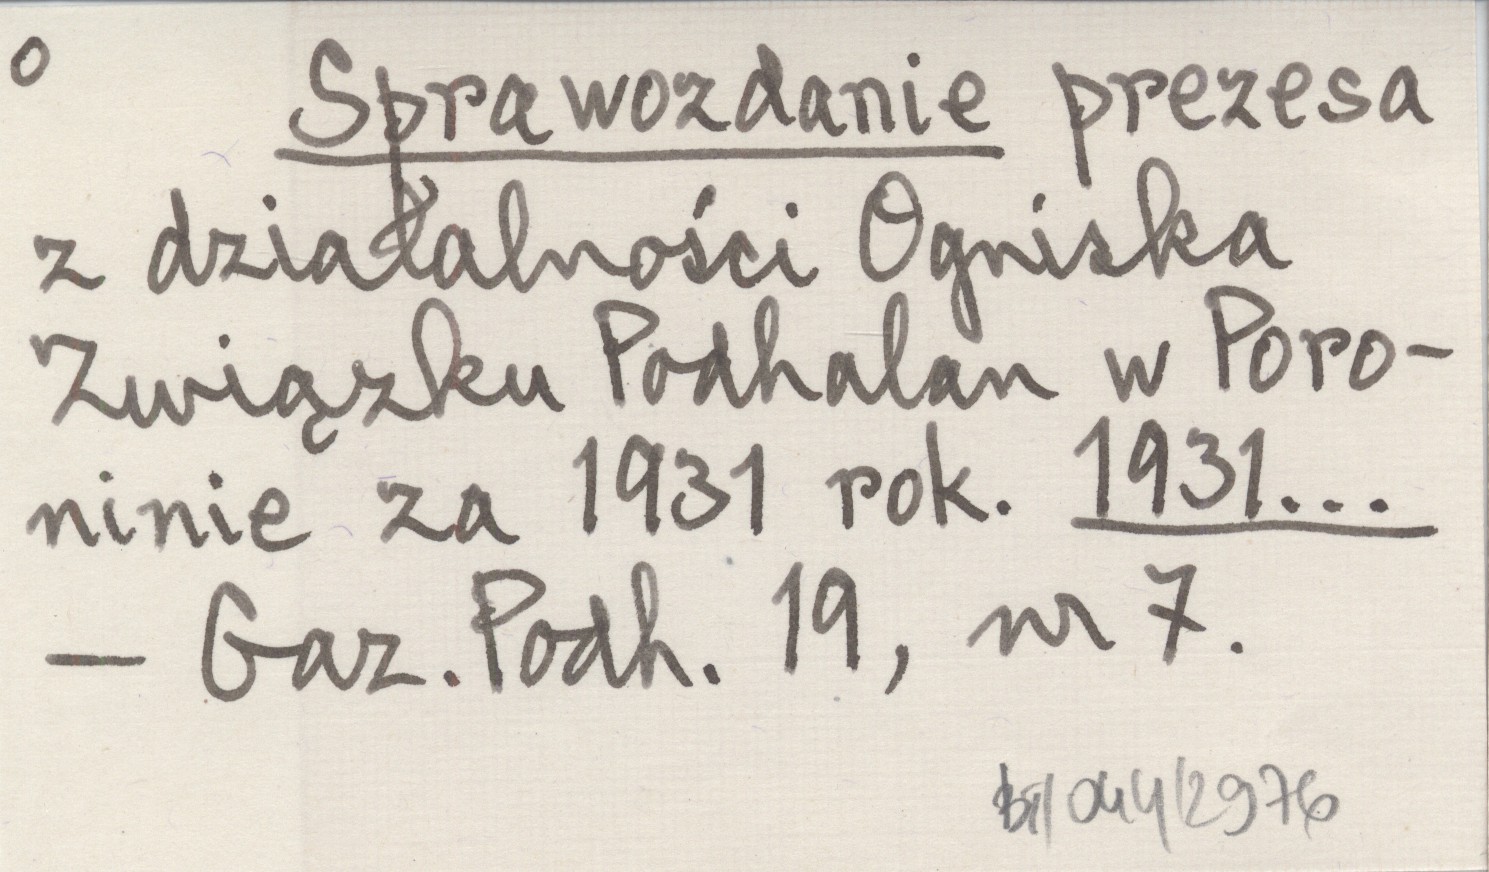 o Sprawozdanie prezesa
z działalności Ogniska
Związku Podhalan w Poro-
ninie za 1931 rok. 1931...
— Gaz. Podh. 19, nr 7.
044/2976